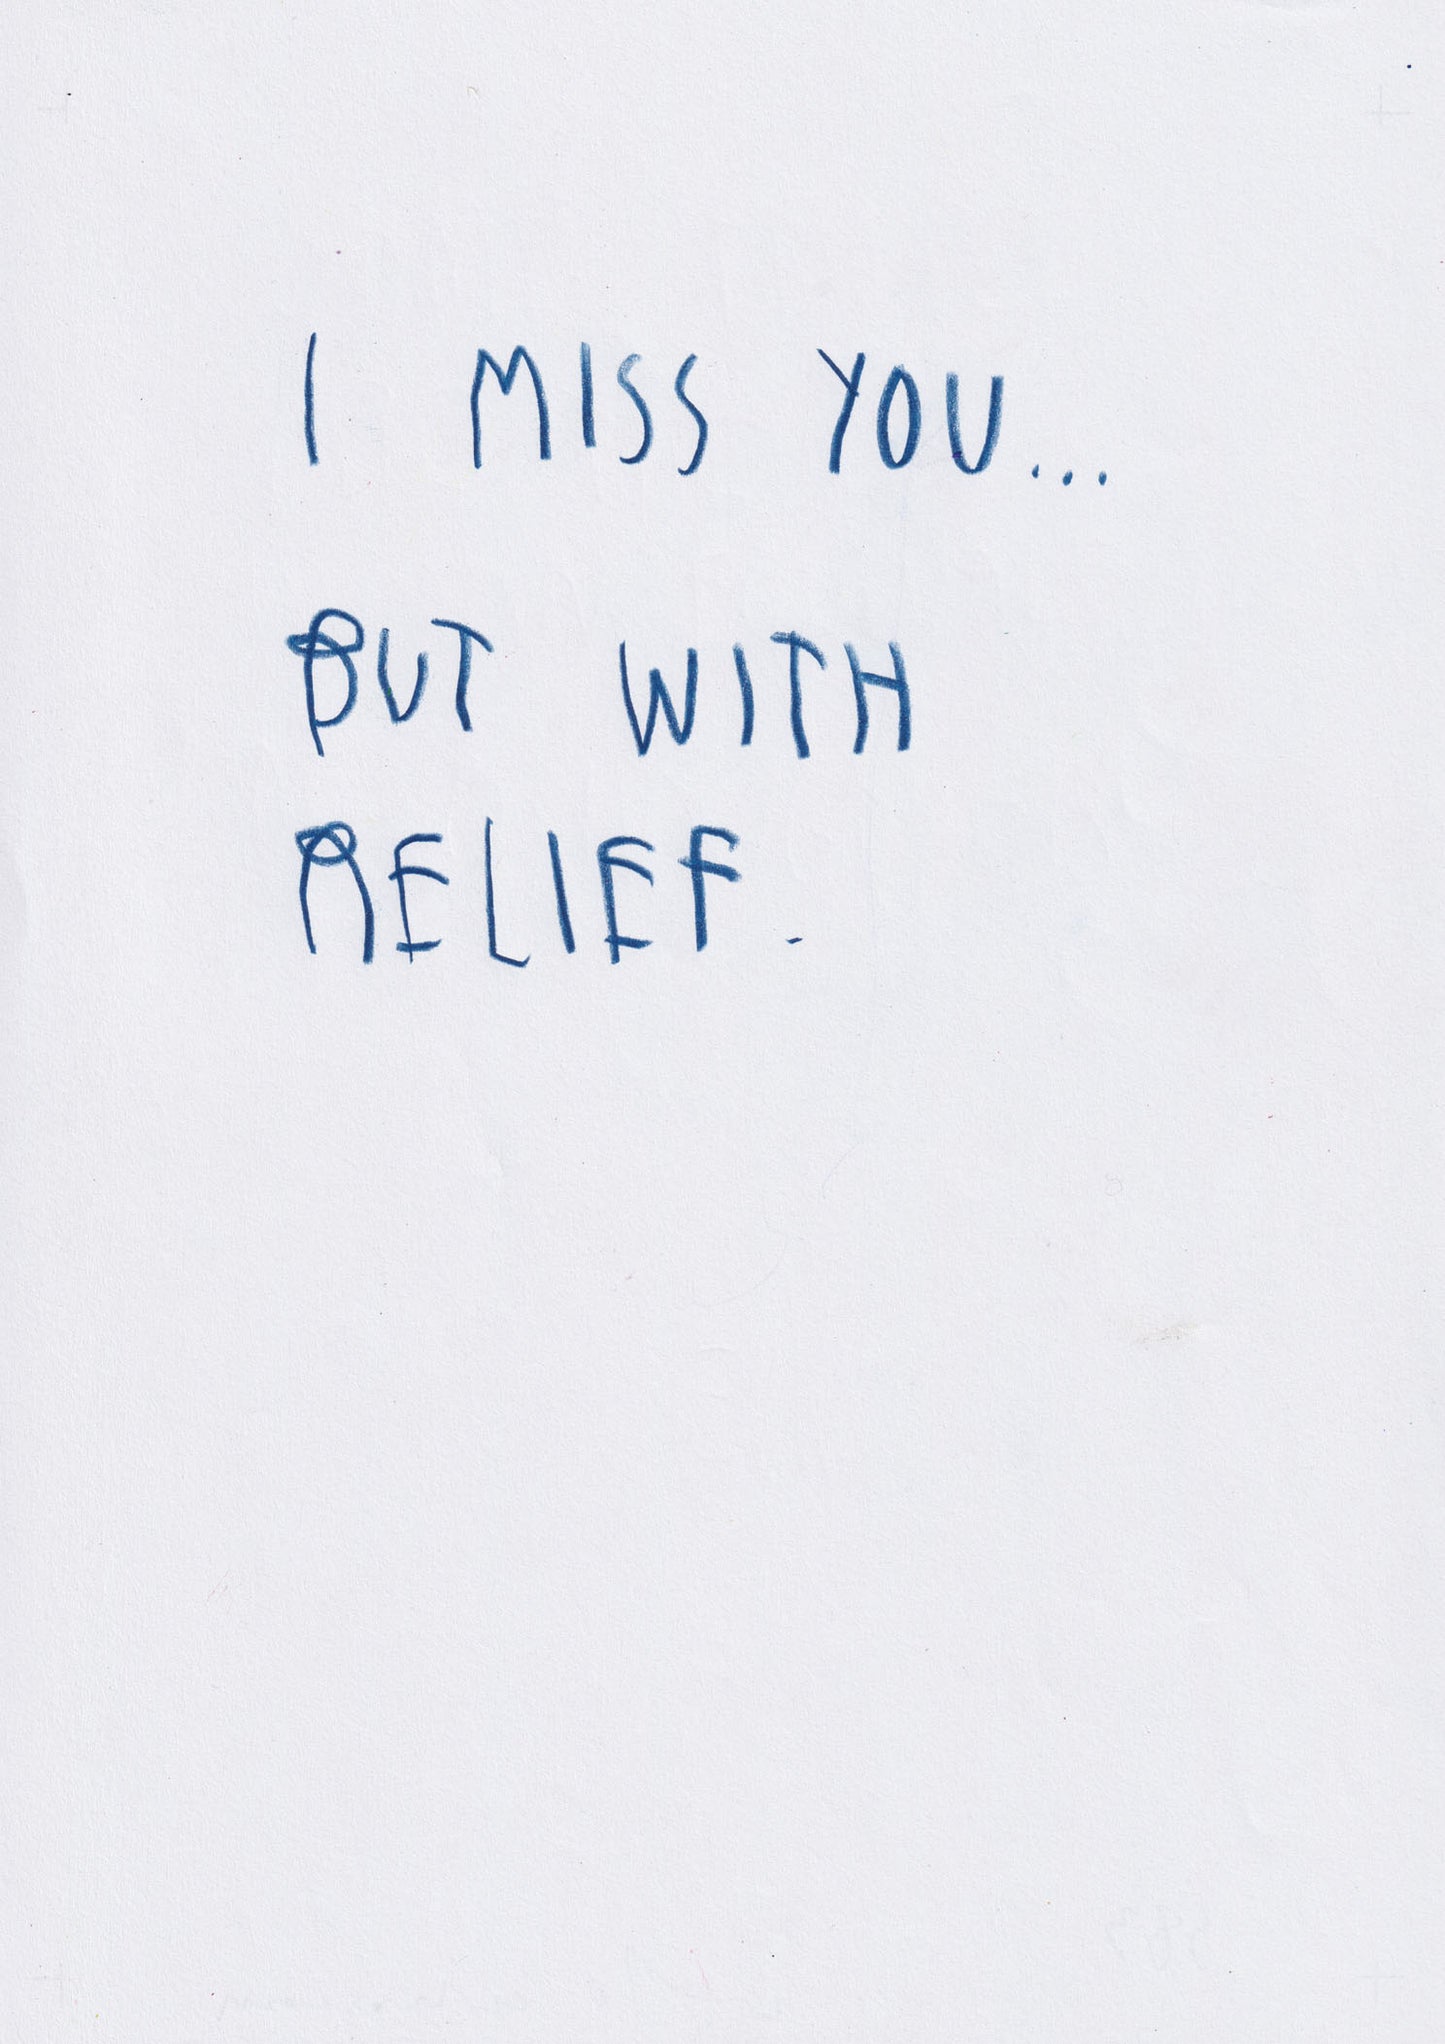 I MISS YOU...
BUT WITH
RELIEF.